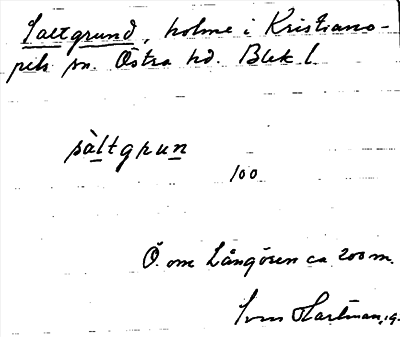 Saltgrund, holme i Kristiano-
pels sn. Östra hd. Blek. l.
sàltgrun
100
Ö. om Långören ca 200 m.
Sven Hartman, ig.